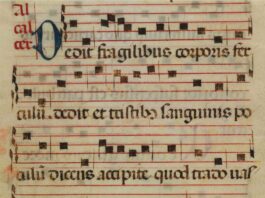 Al
cal
cer
Dedit fragilibus corporis fer
culum . dedit et tristibus sanguinis po
culum dicens accipite quod trado vas